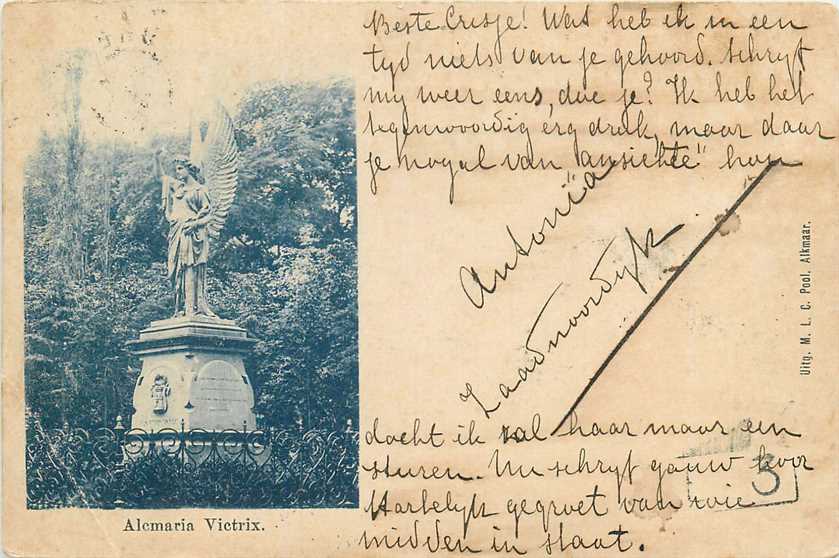 Beste Crisje! Wat heb ik in een
tyd niets van je gehoord. Schryf
my weer eens, doe je? Ik heb het
tegenwoordig erg druk, maar daar
je nogal van "ansichte" hou
Antonia
Zaadnoordyk
dacht ik zal haar maar een
sturen. Nu schryf gauw hoor
Hartelyk gegroet van wie
midden in staat.
3
Alcmaria Victrix.
Uitg. M. L. C. Pool, Alkmaar.